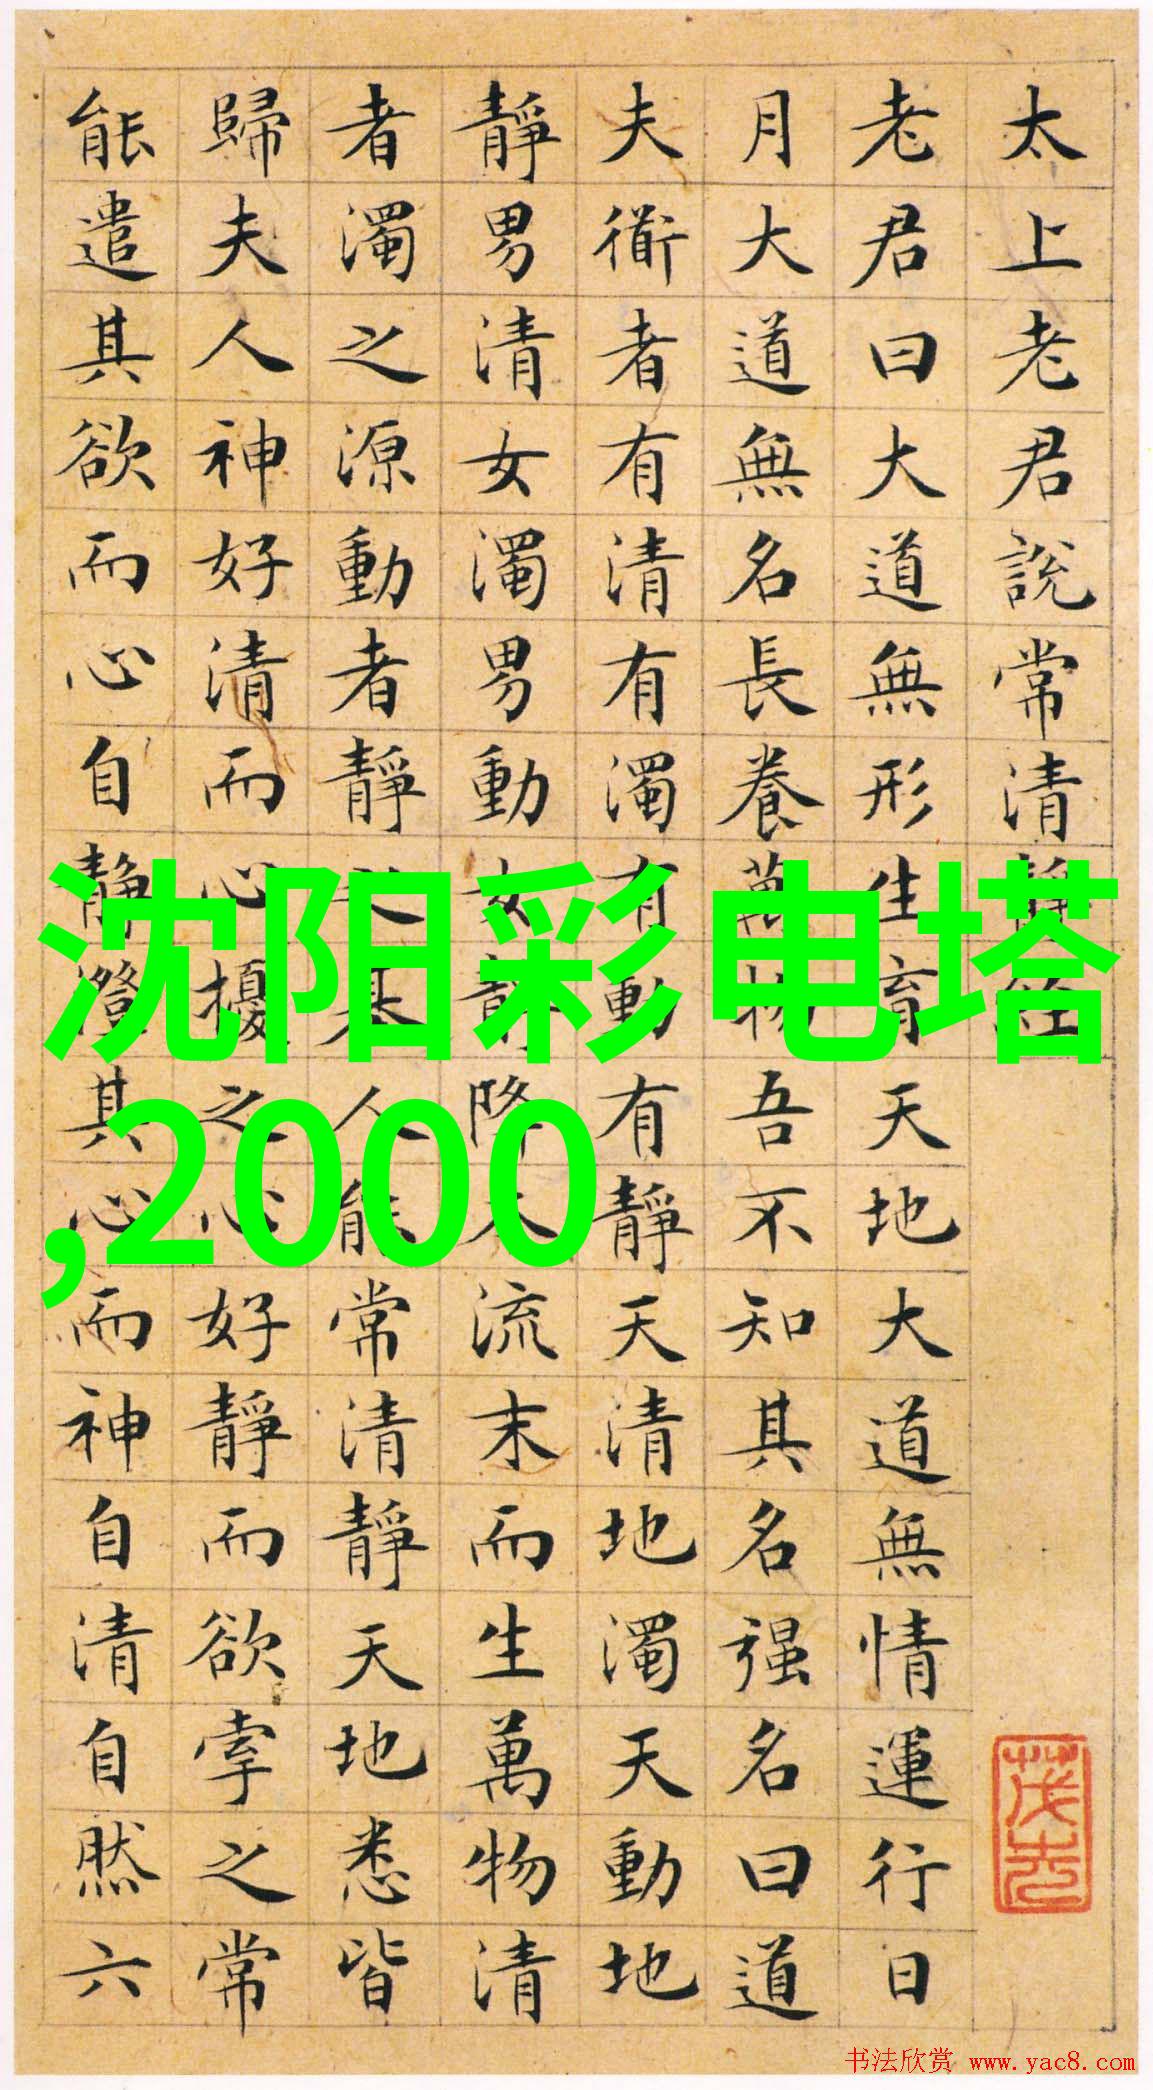 太上老君說常清靜經
老君曰大道無形生育天地大道無情運行日
月大道無名長養萬物吾不知其名强名曰道
夫衜者有清有濁有動有靜天清地濁天動地
靜男清女濁男動女靜降本流末而生萬物清
者濁之源動者靜之基人能常清靜天地悉皆
歸夫人神好清而心擾之心好靜而欲牽之常
能遣其欲而心自靜澄其心而神自清自然六
沈阳彩电塔
,2000
书法欣赏 www.yac8.com